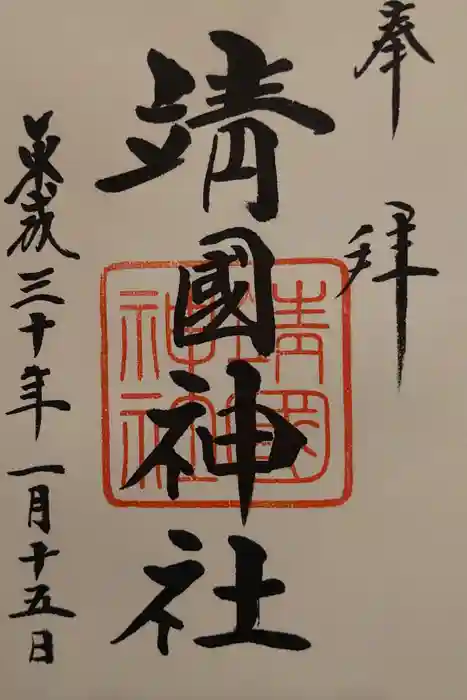 奉拝
靖國神社
靖國神社
平成三十年一月十五日